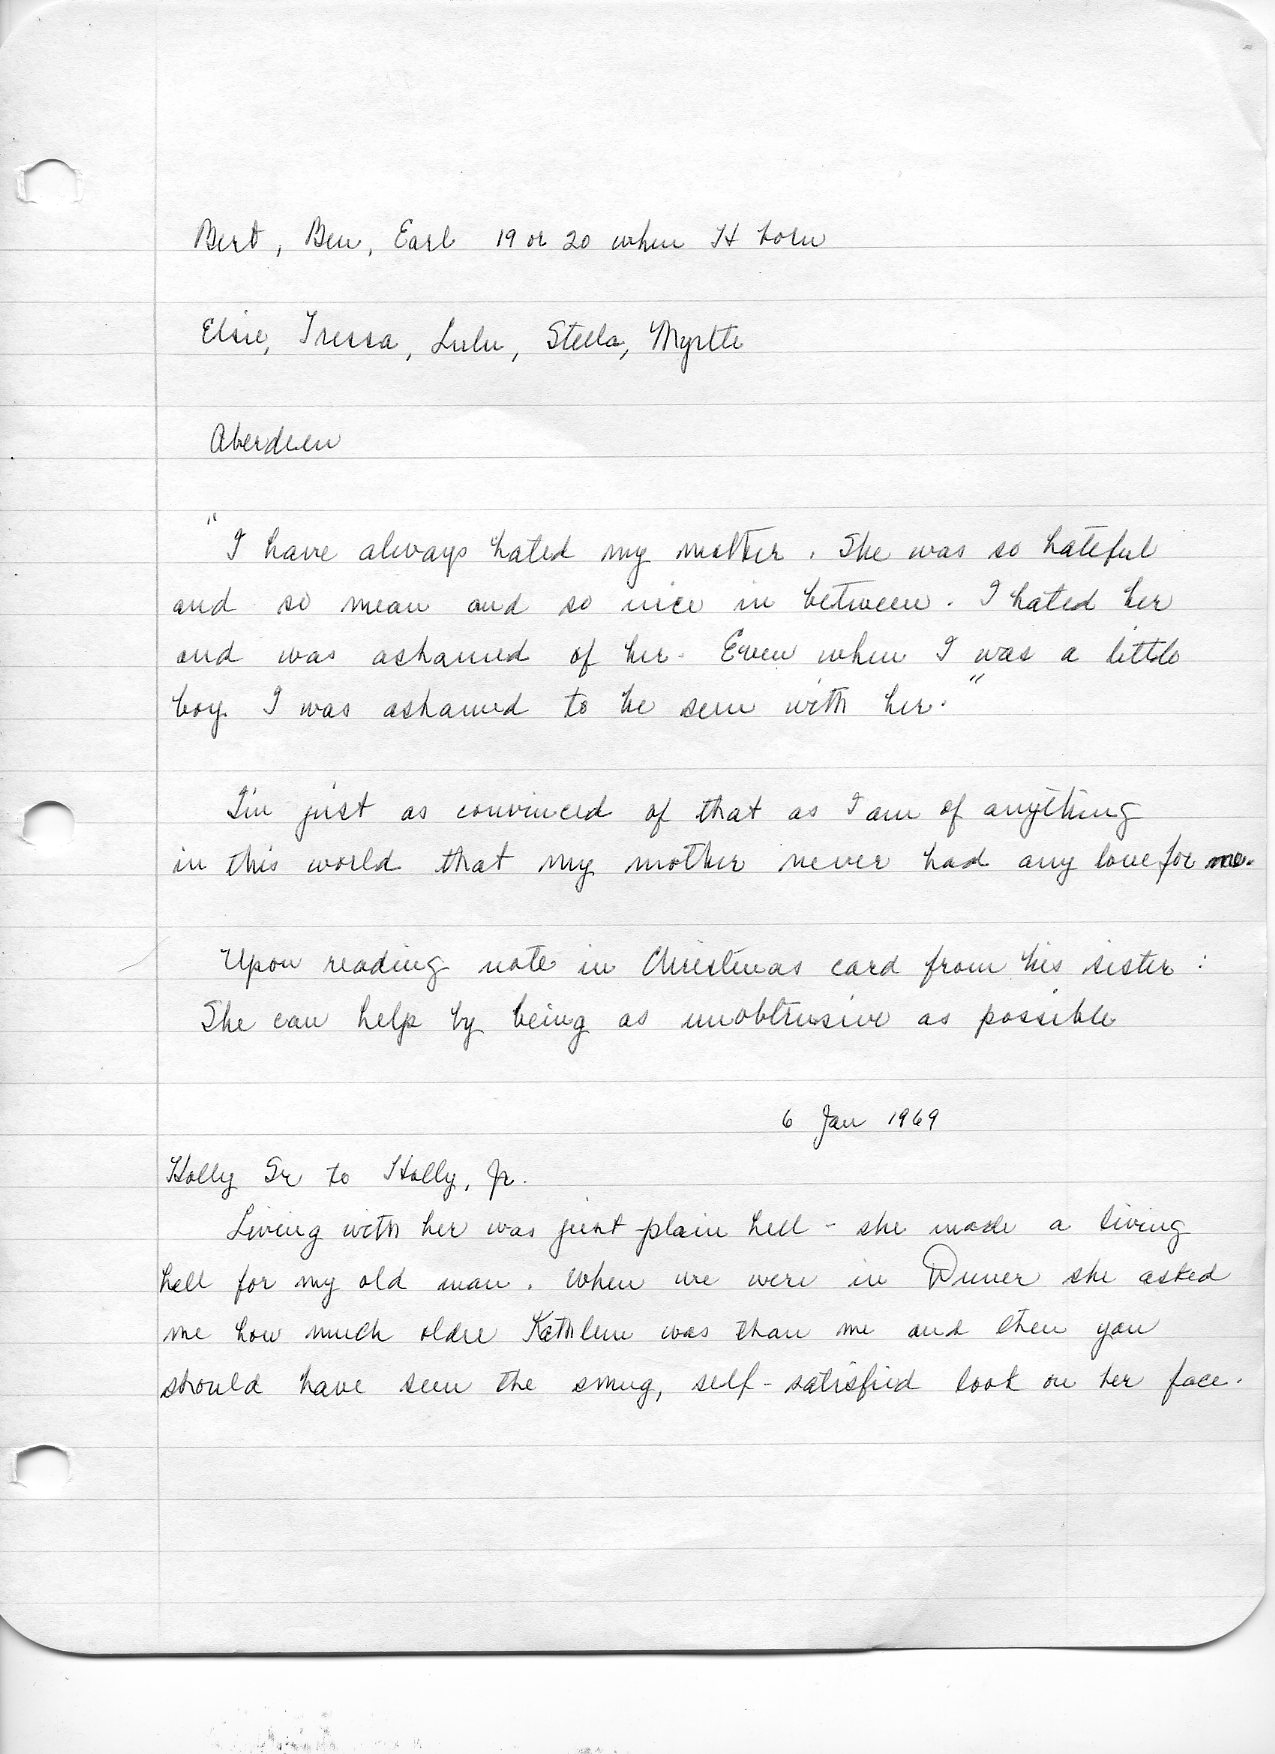 Bert, Ben, Earl 19 or 20 when H born
Elsie, Tressa, Lulu, Stella, Myrtle
Aberdeen
"I have always hated my mother. She was so hateful
and so mean and so nice in between. I hated her
and was ashamed of her. Even when I was a little
boy I was ashamed to be seen with her."
I'm just as convinced of that as I am of anything
in this world that my mother never had any love for me.
Upon reading note in Christmas card from his sister:
She can help by being as unobtrusive as possible
6 Jan 1969
Holly Sr to Holly, Jr.
Living with her was just plain hell - she made a living
hell for my old man. When we were in Denver she asked
me how much older Kathleen was than me and then you
should have seen the smug, self-satisfied look on her face.